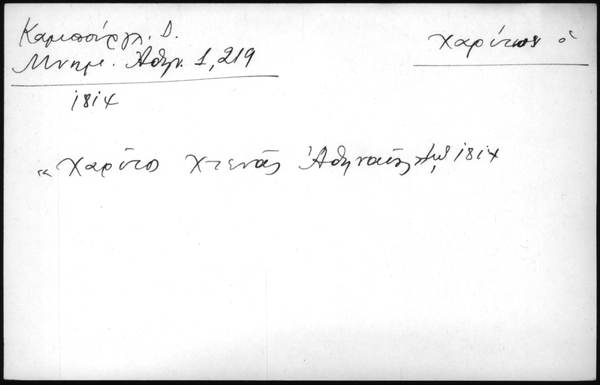 Καμπούργλ. Δ.
Μνημ. Αθην. 1, 219
Χαρίτος ὁ
1814
« Χαρίτο Χτενᾶς Ἀθηναῖος 1814